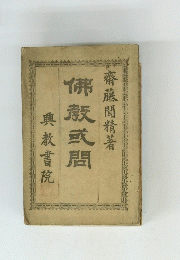 齋藤聞精著
佛教或問
興教書院